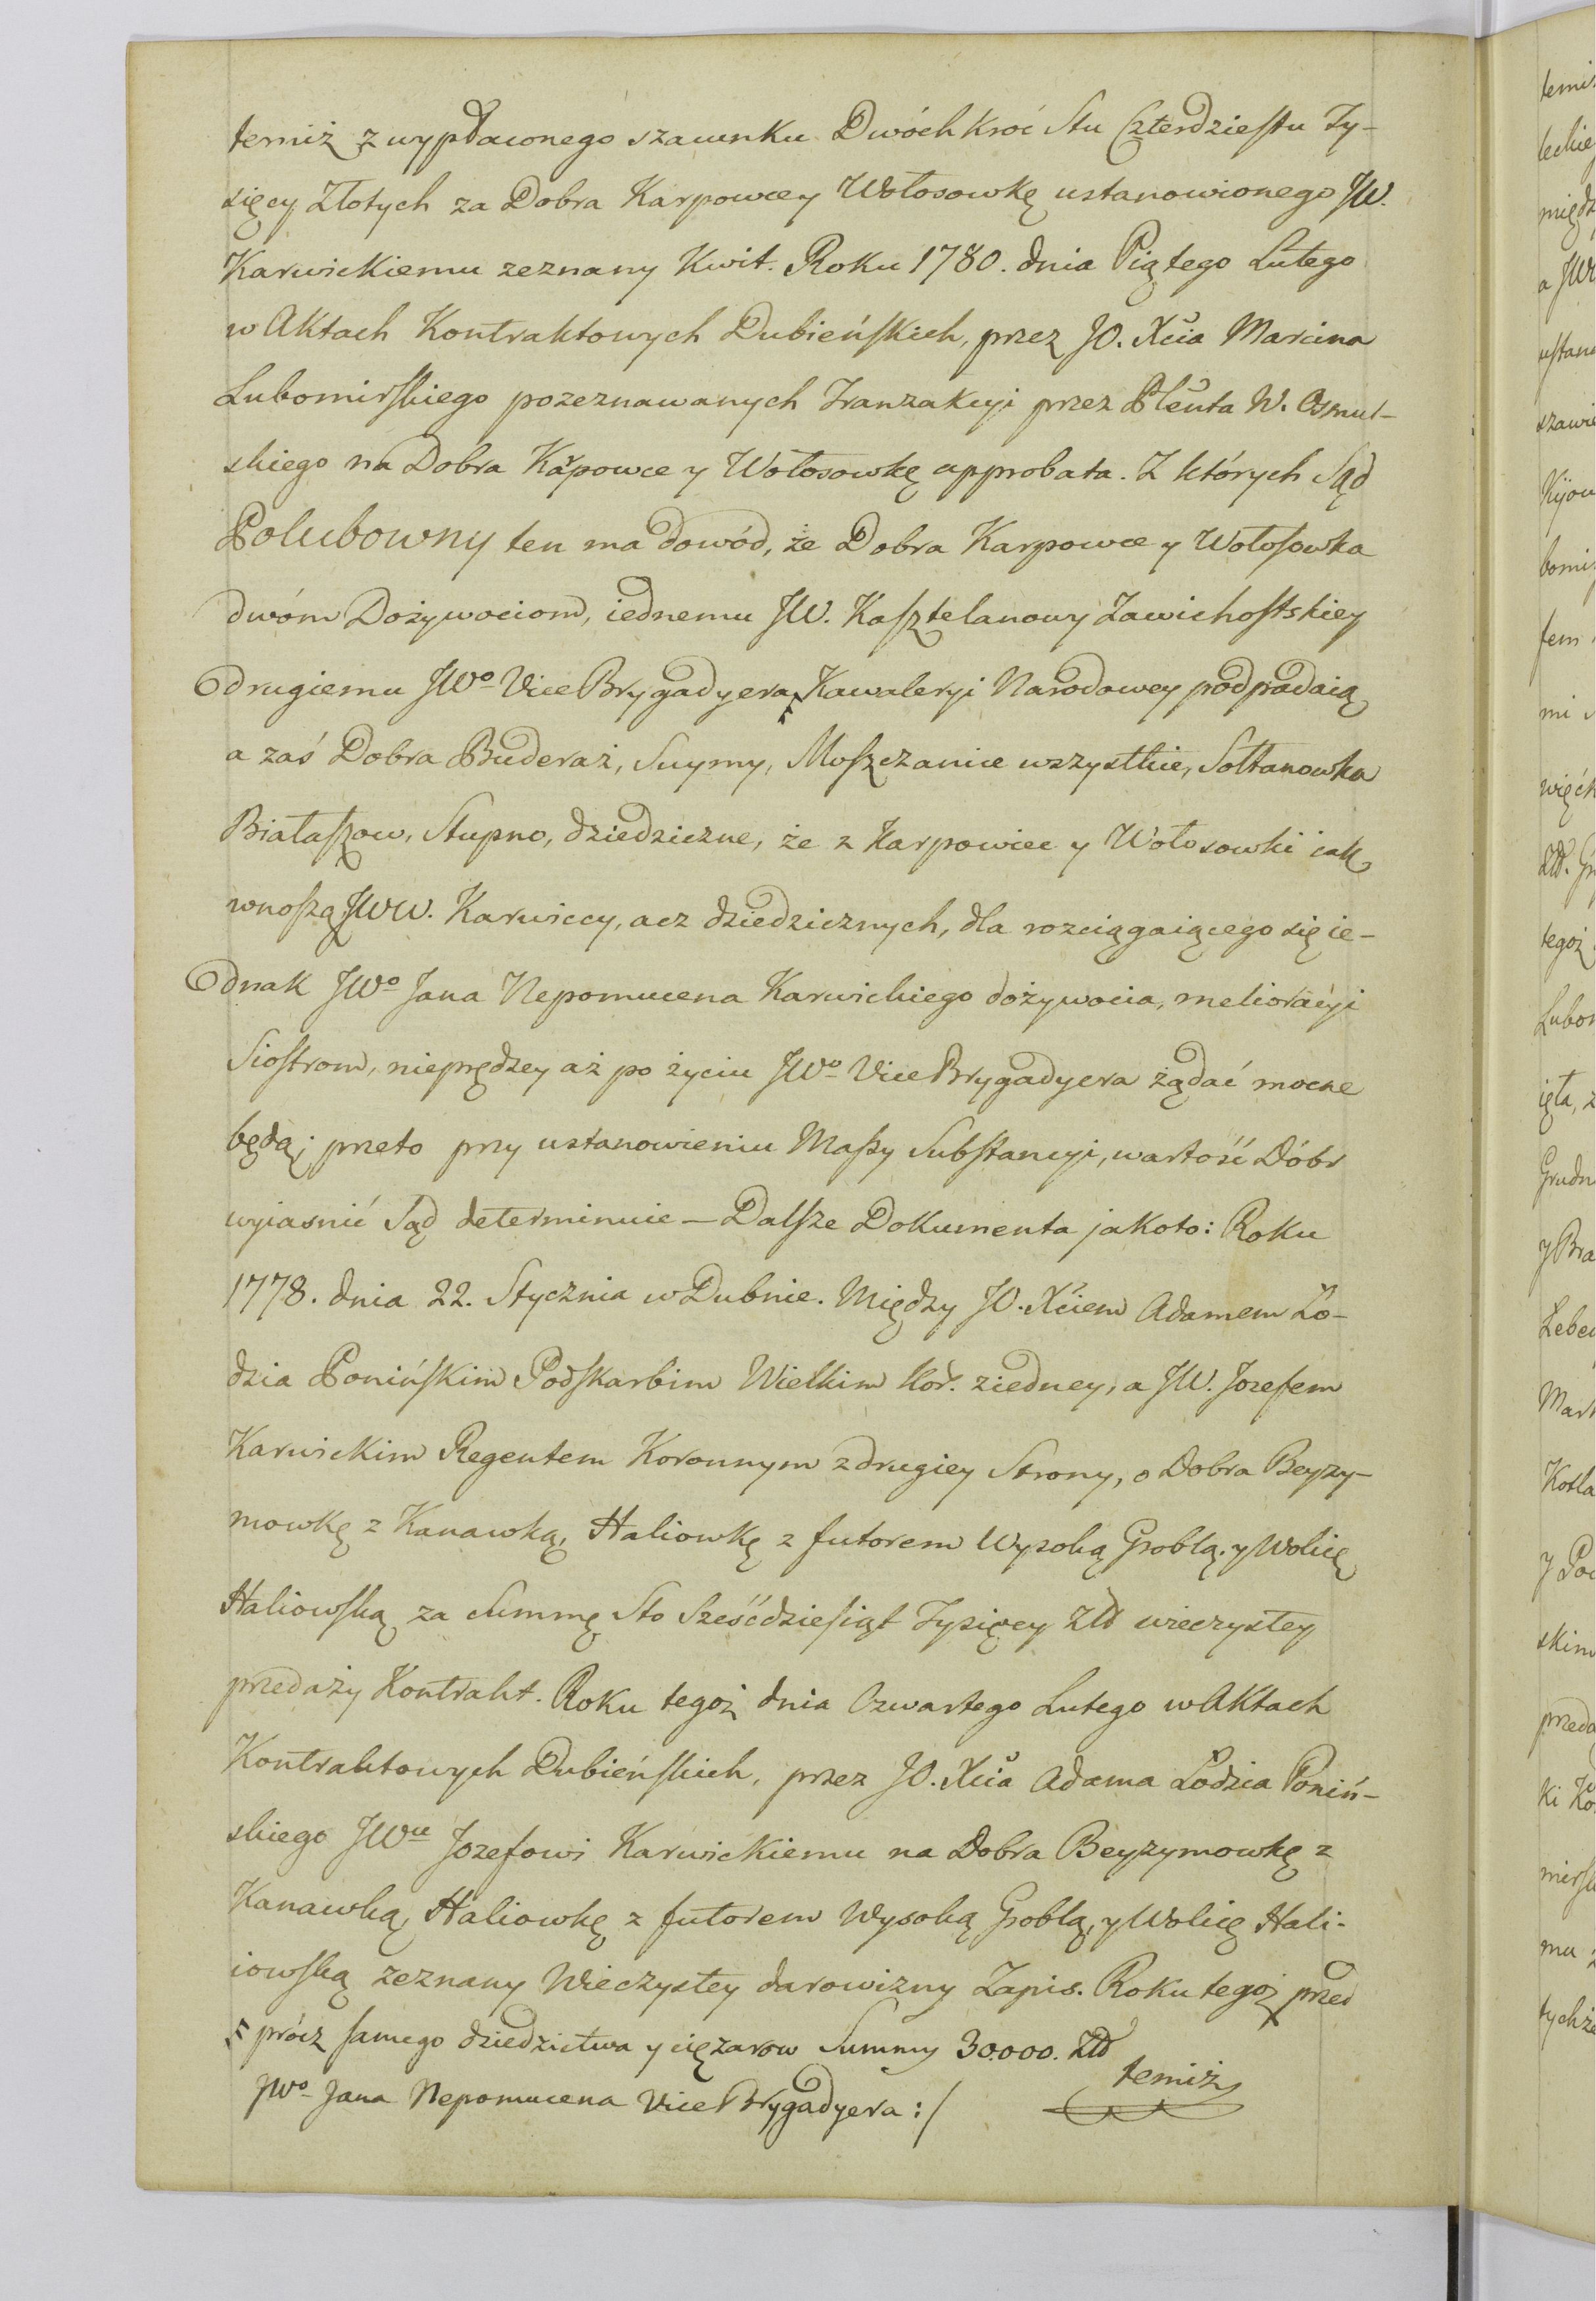 temiż z wypłaconego szacunku Dwóch kroć Stu Czterdziestu Ty-
sięcy Złotych za Dobra Karpowce y Wołosowkę ustanowionego JW.
Karwickiemu zeznany Kwit. Roku 1780. dnia Piątego Lutego
w Aktach Kontraktowych Dubieńskich, przez JO. Xcia Marcina
Lubomirskiego pozeznawanych Tranzakcyi przez Plenta W. Osmul-
skiego na Dobra Karpowce y Wołosowkę approbata. Z których Sąd
Polubowny ten ma dowód, że Dobra Karpowce y Wołosowka
dwóm Dożywociom, iednemu JW. Kasztelanowy Zawichostskiey
drugiemu JWo Vice Brygadyera Kawaleryi Narodowey podpadaią
a zaś Dobra Buderaż, Suymy, Moszczanice wszystkie, Sołtanowka
Białaszow, Stupno, dziedziczne, że z Karpowiec y Wołosowki iak
wnoszą JWW. Karwiccy, acz dziedzicznych, dla rozciągaiącego się ie-
dnak JWo Jana Nepomucena Karwickiego dożywocia, melioracyi
Siostrom, nieprędzey aż po życiu JWo Vice Brygadyera żądać mocne
będą; przeto przy ustanowieniu Massy Substancyi, wartość Dóbr
wyiasnić Sąd determinuie — Dalsze Dokumenta jakoto: Roku
1778. dnia 22. Stycznia w Dubnie. Między JO. Xciem Adamem Ło-
dzia Ponińskim Podskarbim Wielkim Kor. ziedney, a JW. Jozefem
Karwickim Regentem Koronnym z drugiey Strony, o Dobra Beyzy-
mowkę z Kanawką, Haliowkę z futorem Wysoką Groblą. y Wolicę
Haliowską za Summę Sto Sześćdziesiąt Tysięcy Złł wieczystey
przedaży Kontrakt. Roku tegoż dnia Czwartego Lutego w Aktach
Kontraktowych Dubieńskich, przez JO. Xcia Adama Łodzia Poniń-
skiego JWu Jozefowi Karwickiemu na Dobra Beyzymowkę z
Kanawką, Haliowkę z futorem Wysoką Groblą, y Wolicę Hali-
iowską zeznany Wieczystey darowizny Zapis. Roku tegoż przed
prócz samego dziedzictwa y ciężarow Summy 30.000. Złł
JWo Jana Nepomucena Vice Brygadyera :/
temiż